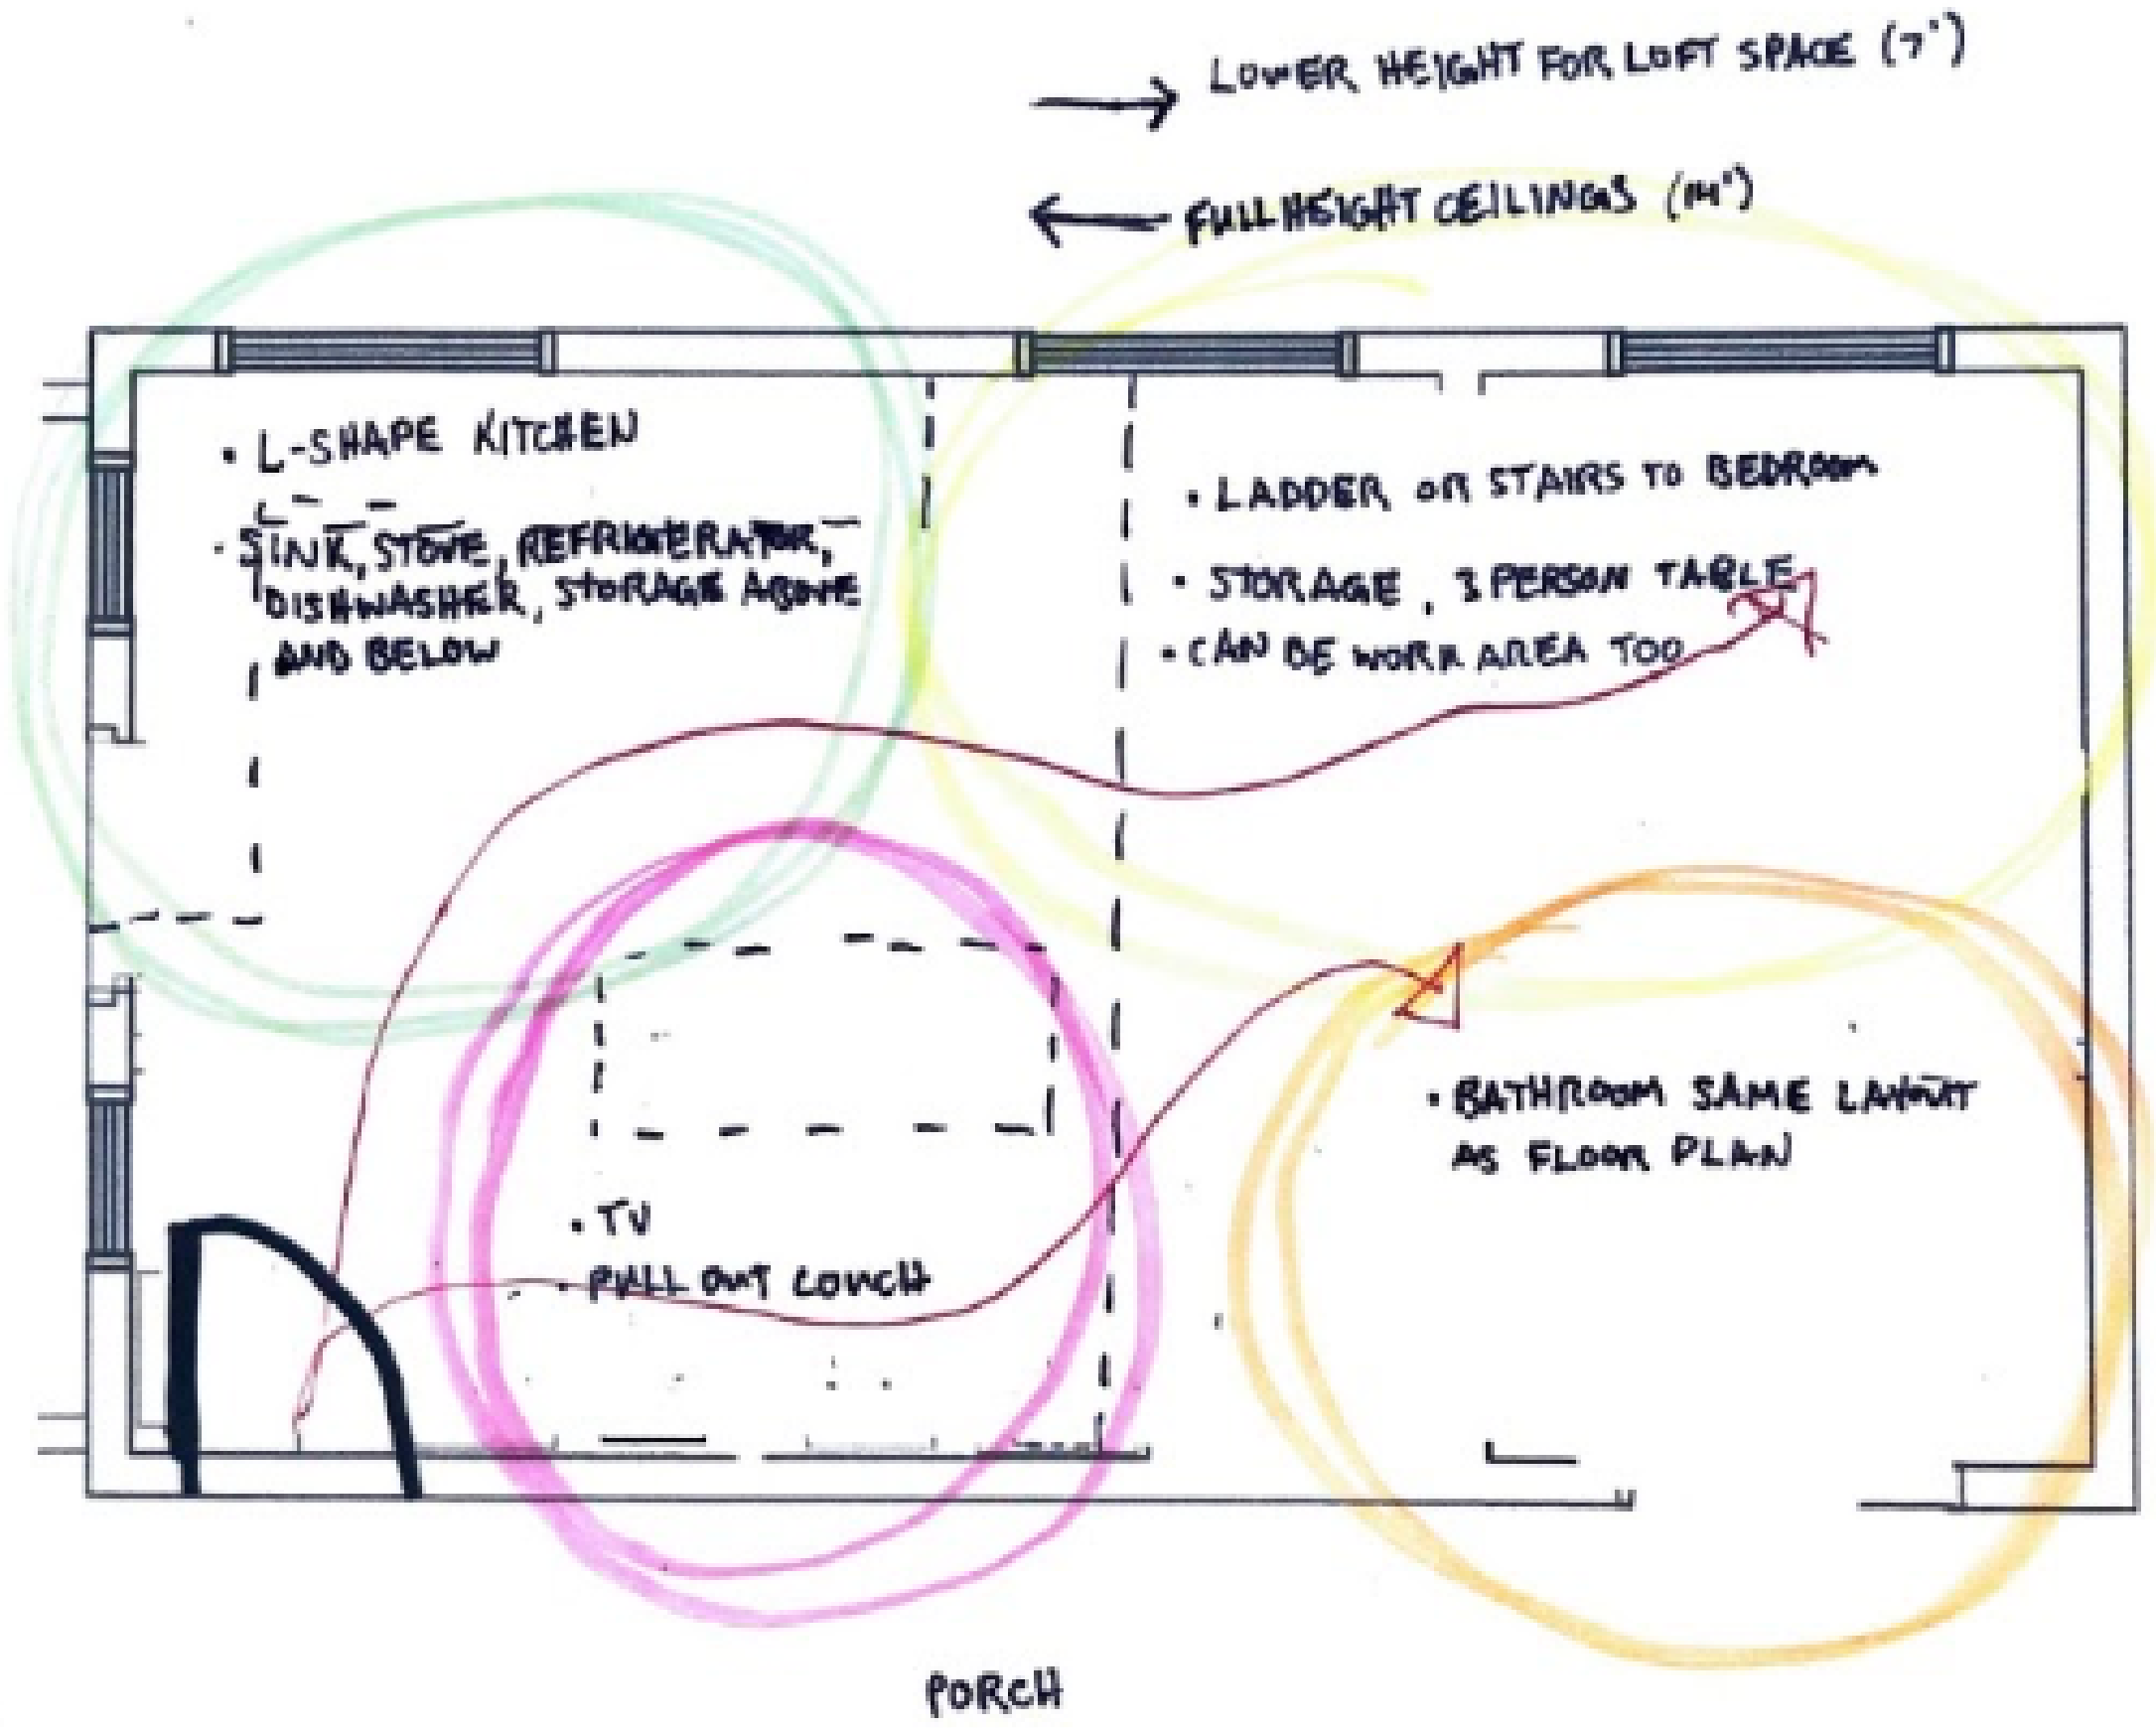 LOWER HEIGHT FOR LOFT SPACE (7')
FULL HEIGHT CEILINGS (14')
• L-SHAPE KITCHEN
• SINK, STOVE, REFRIGERATOR,
DISHWASHER, STORAGE ABOVE
AND BELOW
• LADDER OR STAIRS TO BEDROOM
• STORAGE, 3 PERSON TABLE
• CAN BE WORK AREA TOO
• BATHROOM SAME LAYOUT
AS FLOOR PLAN
• TV
• PULL OUT COUCH
PORCH